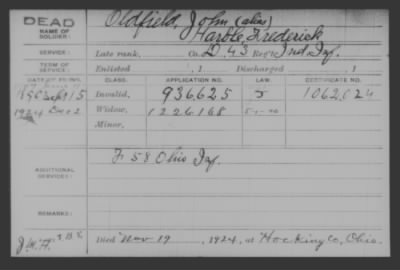 DEAD
NAME OF SOLDIER:
Oldfield, John (alias)
Hartle, Frederick
SERVICE:
Late rank, Co. D, 43 Reg't Ind. Inf.
TERM OF SERVICE:
Enlisted , 1 Discharged , 1
DATE OF FILING. CLASS. APPLICATION NO. LAW. CERTIFICATE NO.
Sept 15 Invalid, 936,625 J 1062,024
1924 Dec 2 Widow, 1226168 5-1-20
Minor,
ADDITIONAL SERVICES:
F 58 Ohio Inf.
REMARKS:
Died Nov 19, 1924, at Hocking Co, Ohio.